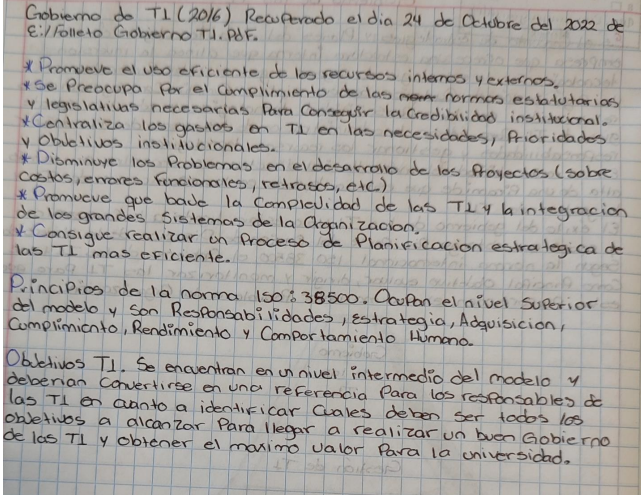 Gobierno de TI (2016) Recuperado el dia 24 de Octubre del 2022 de
E:i/Folleto Gobierno TI.Pdf.
* Promueve el uso eficiente de los recursos internos y externos.
* Se Preocupa Por el cumplimiento de las normas estatutarias
y legislativas necesarias Para Conseguir la Credibilidad institucional.
* Centraliza los gastos en TI en las necesidades, Prioridades
y objetivos institucionales.
* Disminuye los Problemas en el desarrollo de los Proyectos (sobre
costos, errores funcionales, retrasos, etc.)
* Promueve que baje la Complejidad de las TI y la integracion
de los grandes sistemas de la Organizacion.
* Consigue realizar un Proceso de Planificacion estrategica de
las TI mas eficiente.
Principios de la norma ISO: 38500. Ocupan el nivel Superior
del modelo y son Responsabilidades, Estrategia, Adquisicion,
Cumplimiento, Rendimiento y Comportamiento Humano.
Objetivos TI. Se encuentran en un nivel intermedio del modelo y
deberian Convertirse en una referencia Para los responsables de
las TI en cuanto a identificar Cuales deben ser todos los
objetivos a alcanzar Para llegar a realizar un buen Gobierno
de las TI y obtener el maximo valor Para la universidad.